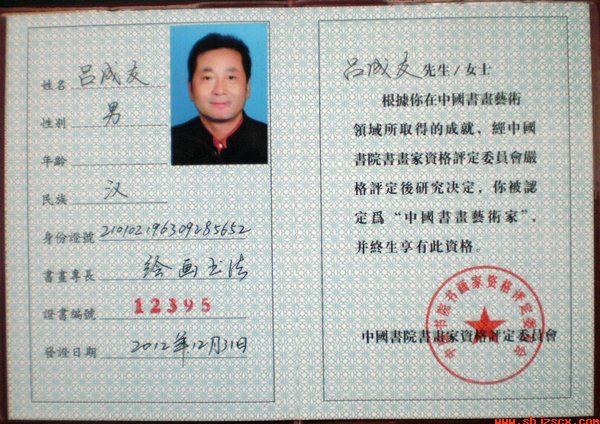 姓名 吕成友
性别 男
年齡
民族 汉
身份證號 210102196309285652
書畫專長 绘画书法
證書編號 12395
發證日期 2012年12月31日
吕成友 先生/女士
根據你在中國書畫藝術
領域所取得的成就，經中國
書院書畫家資格評定委員會嚴
格評定後研究决定，你被認
定爲“中國書畫藝術家”，
并終生享有此資格。
中國書院書畫家資格評定委員會
中国书院书画家资格评定委员会
www.sbjzscx.com